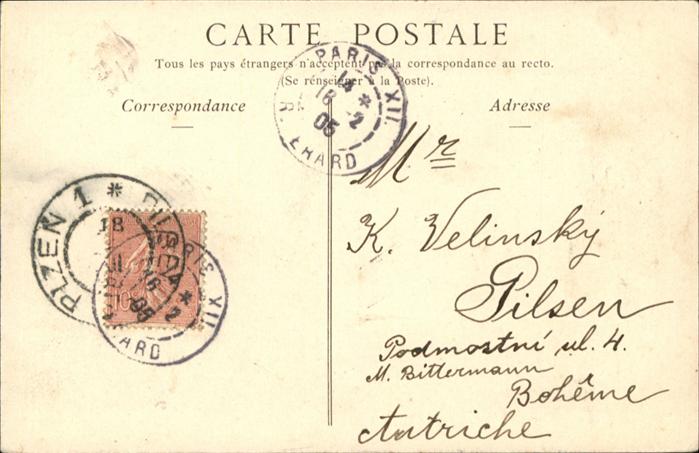 CARTE POSTALE
Tous les pays étrangers n'acceptent pas la correspondance au recto.
(Se renseigner à la Poste).
Correspondance
Adresse
PARIS XII
18
* 2
05
R. ERARD
Mr
K. Velinský
Pilsen
Podmostní ul. 4.
M. Bittermann
Bohême
Autriche
PLZEN 1 *
18
10
PARIS XII
* 2
05
ERARD